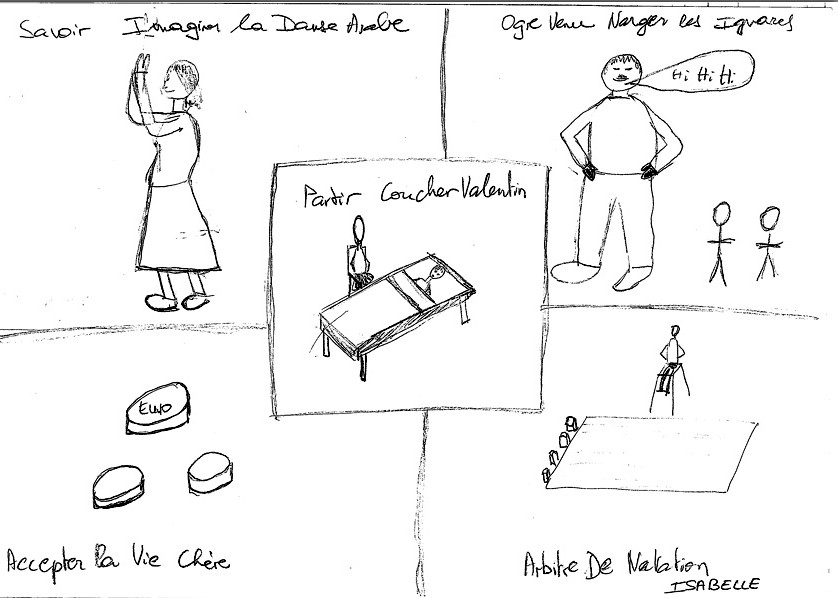 Savoir Imaginer la Danse Arabe
Ogre Venu Narger les Ignares
Hi Hi Hi
Partir Coucher Valentin
EURO
Accepter la Vie Chère
Arbitre De Natation
ISABELLE